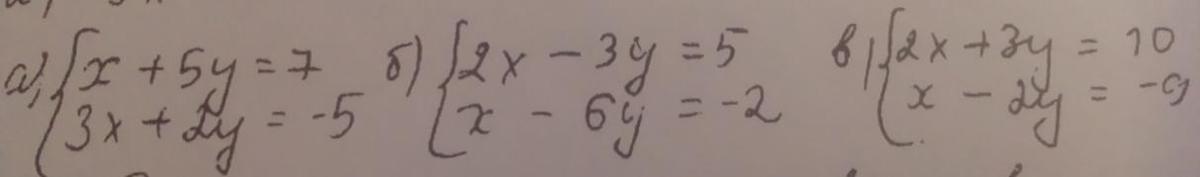 а) { x + 5y = 7
3x + 2y = -5
б) { 2x - 3y = 5
x - 6y = -2
в) { 2x + 3y = 10
x - 2y = -9